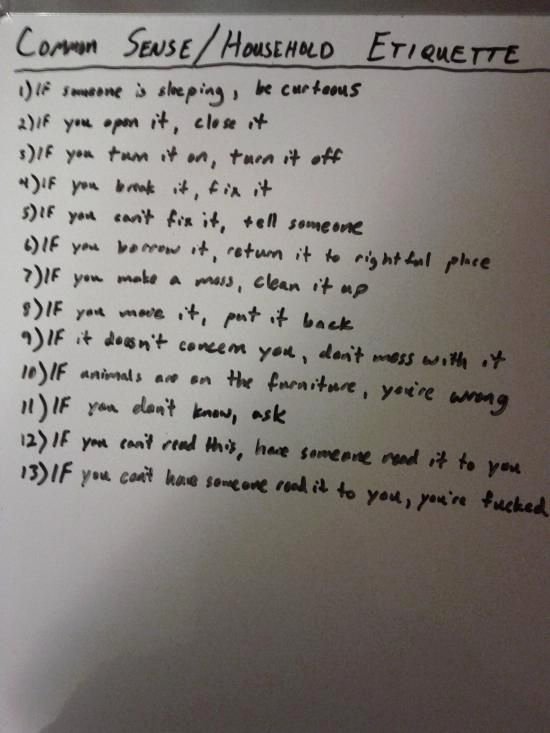 Common Sense/Household Etiquette
1) IF someone is sleeping, be curteous
2) IF you open it, close it
3) IF you turn it on, turn it off
4) IF you break it, fix it
5) IF you can't fix it, tell someone
6) IF you borrow it, return it to rightful place
7) IF you make a mess, clean it up
8) IF you move it, put it back
9) IF it doesn't concern you, don't mess with it
10) IF animals are on the furniture, you're wrong
11) IF you don't know, ask
12) IF you can't read this, have someone read it to you
13) IF you can't have someone read it to you, you're fucked